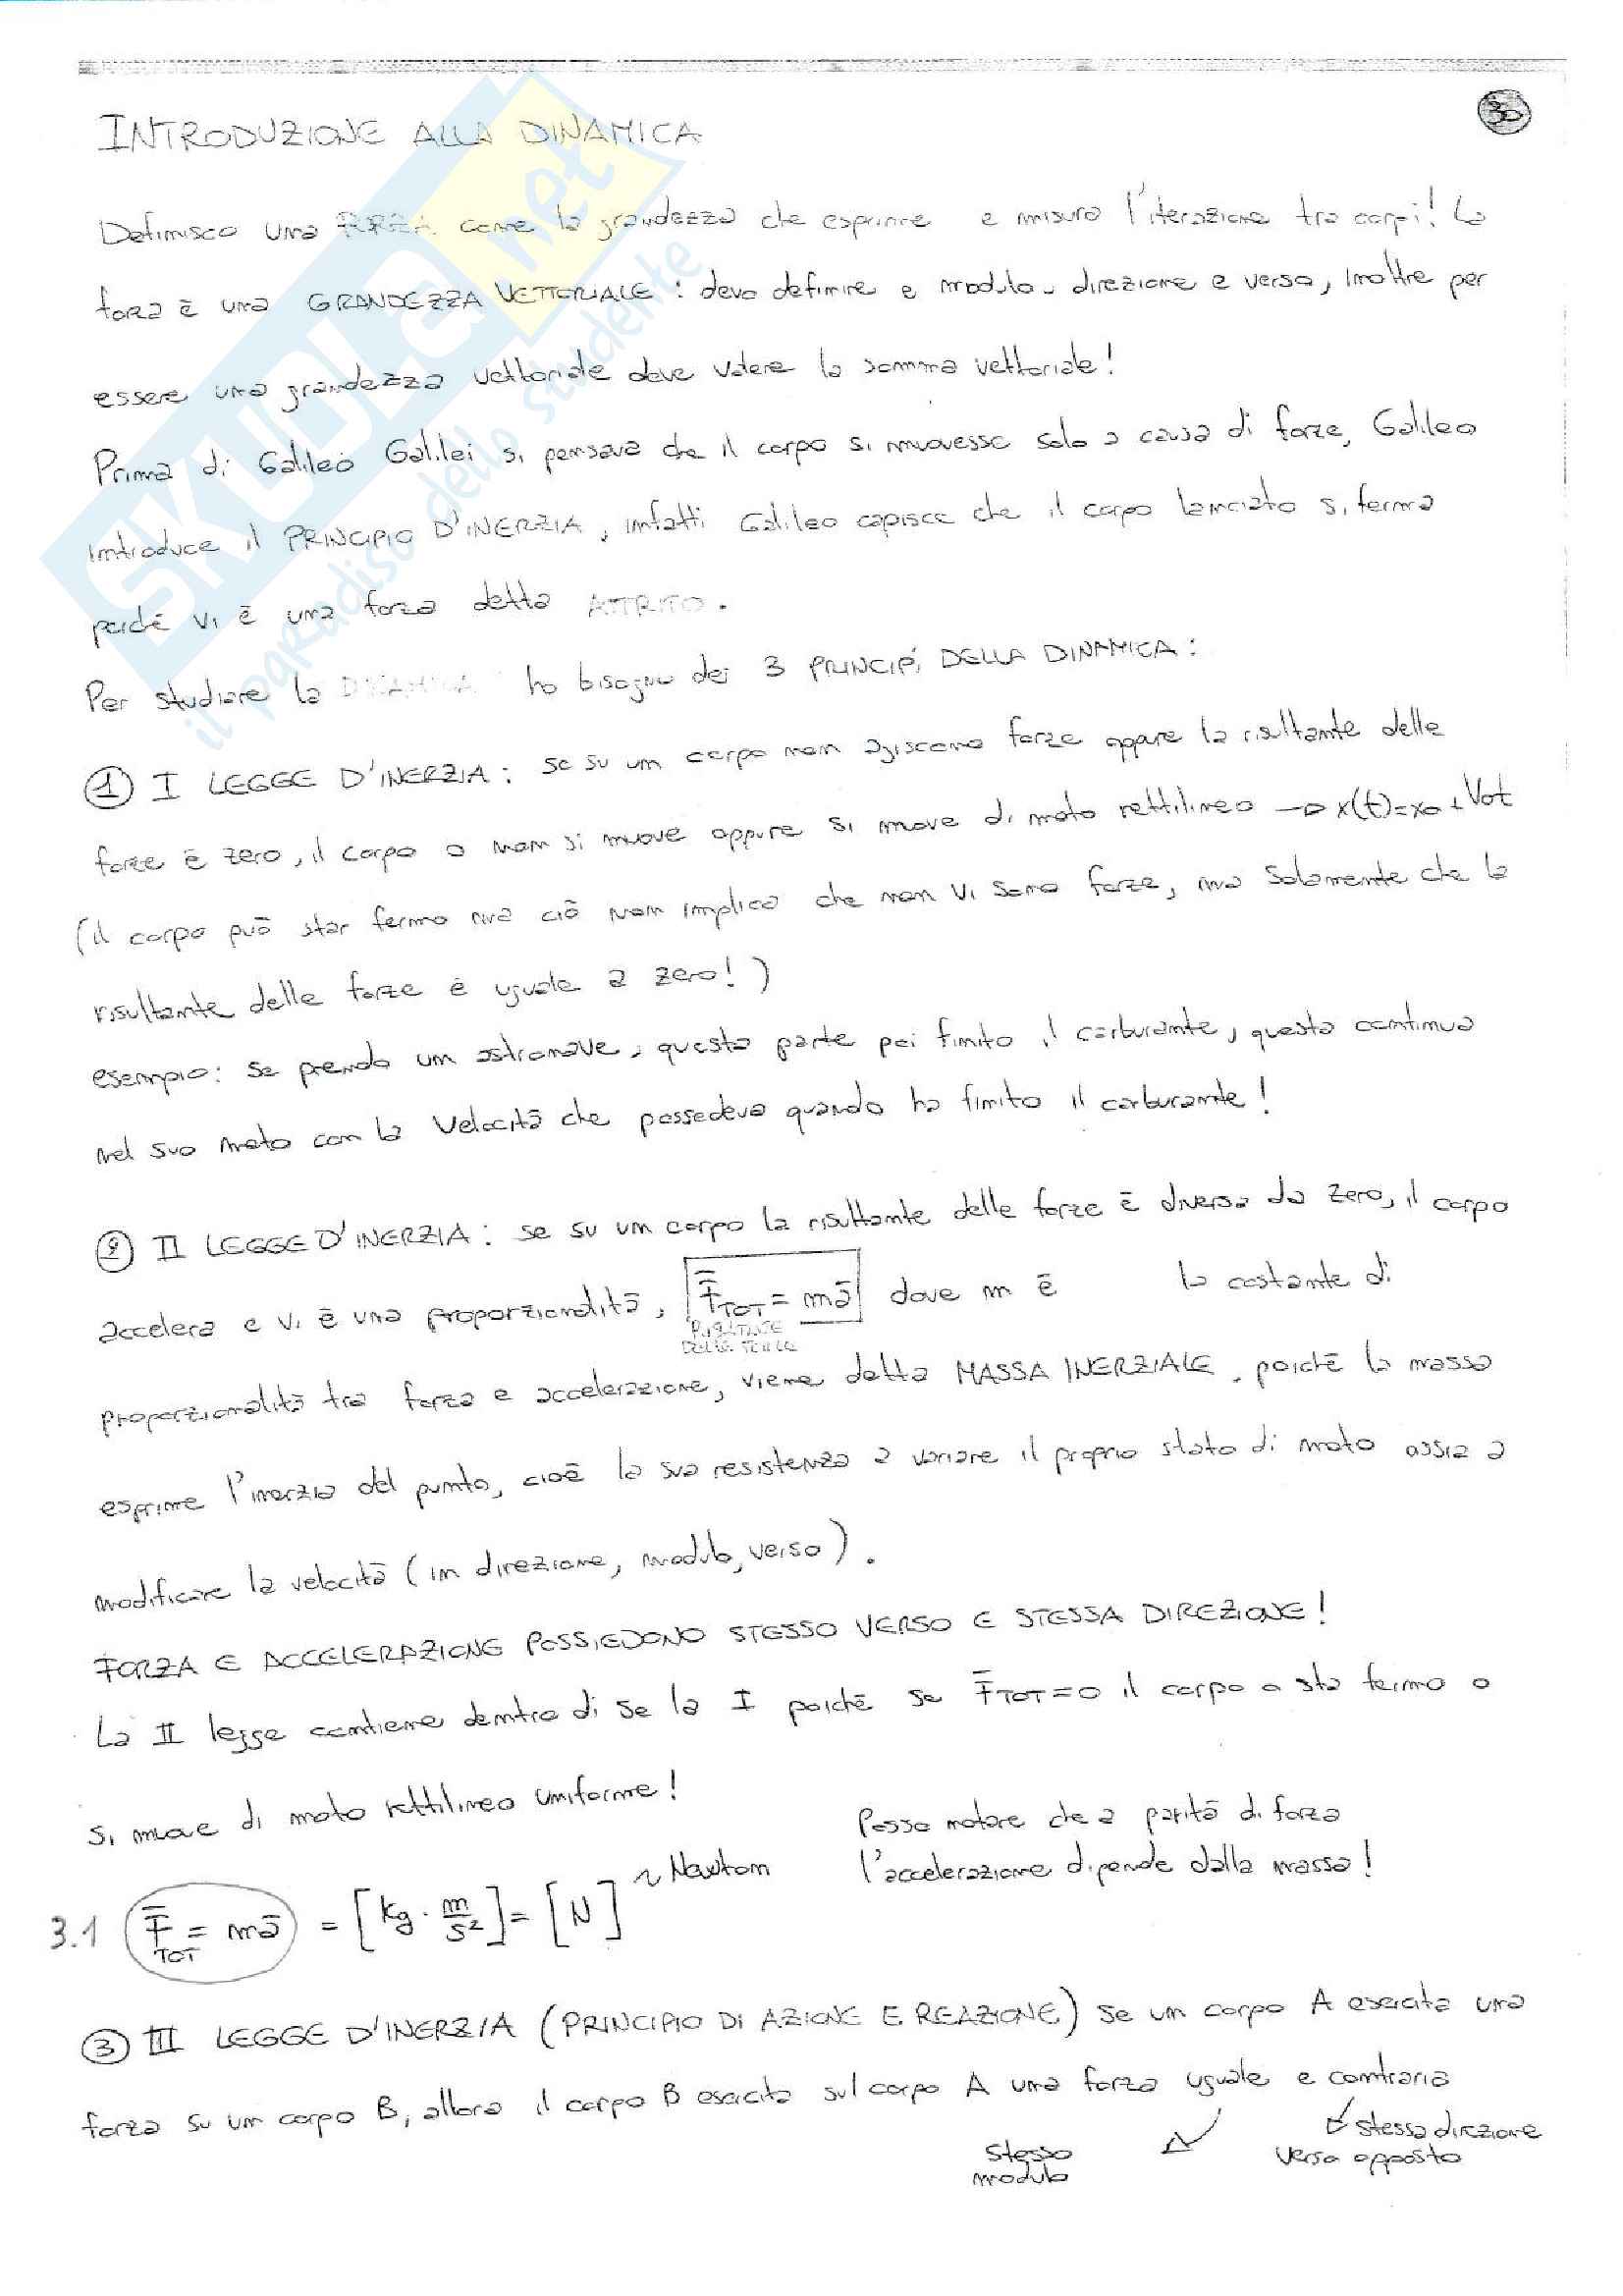 30
INTRODUZIONE ALLA DINAMICA
Definisco una FORZA come la grandezza che esprime e misura l'iterazione tra corpi! La
forza è una GRANDEZZA VETTORIALE: devo definire e modulo, direzione e verso, inoltre per
essere una grandezza vettoriale deve valere la somma vettoriale!
Prima di Galileo Galilei si pensava che il corpo si muovesse solo a causa di forze, Galileo
introduce il PRINCIPIO D'INERZIA, infatti Galileo capisce che il corpo lanciato si ferma
perché vi è una forza detta ATTRITO.
Per studiare la DINAMICA ho bisogno dei 3 PRINCIPI DELLA DINAMICA:
① I LEGGE D'INERZIA: se su un corpo non agiscono forze oppure la risultante delle
forze è zero, il corpo o non si muove oppure si muove di moto rettilineo → x(t)=x0+V0t
(il corpo può star fermo ma ciò non implica che non vi sono forze, ma solamente che la
risultante delle forze è uguale a zero!)
esempio: se prendo un astronave, questa parte poi finito il carburante, questa continua
nel suo moto con la velocità che possedeva quando ha finito il carburante!
② II LEGGE D'INERZIA: se su un corpo la risultante delle forze è diversa da zero, il corpo
accelera e vi è una proporzionalità, F̄TOT = mā dove m è la costante di
RISULTANTE
DELLE FORZE
proporzionalità tra forza e accelerazione, viene detta MASSA INERZIALE, poiché la massa
esprime l'inerzia del punto, cioè la sua resistenza a variare il proprio stato di moto assia a
modificare la velocità (in direzione, modulo, verso).
FORZA E ACCELERAZIONE POSSIEDONO STESSO VERSO E STESSA DIREZIONE!
La II legge contiene dentro di se la I poiché se F̄TOT=0 il corpo o sta fermo o
si muove di moto rettilineo uniforme!
Posso notare che a parità di forza
l'accelerazione dipende dalla massa!
3.1 F̄TOT = mā = [kg · m/s²] = [N] Newton
③ III LEGGE D'INERZIA (PRINCIPIO DI AZIONE E REAZIONE) se un corpo A esercita una
forza su un corpo B, allora il corpo B esercita sul corpo A una forza uguale e contraria
stesso
modulo
stessa direzione
verso opposto
SKUOLa.net
il paradiso dello studente